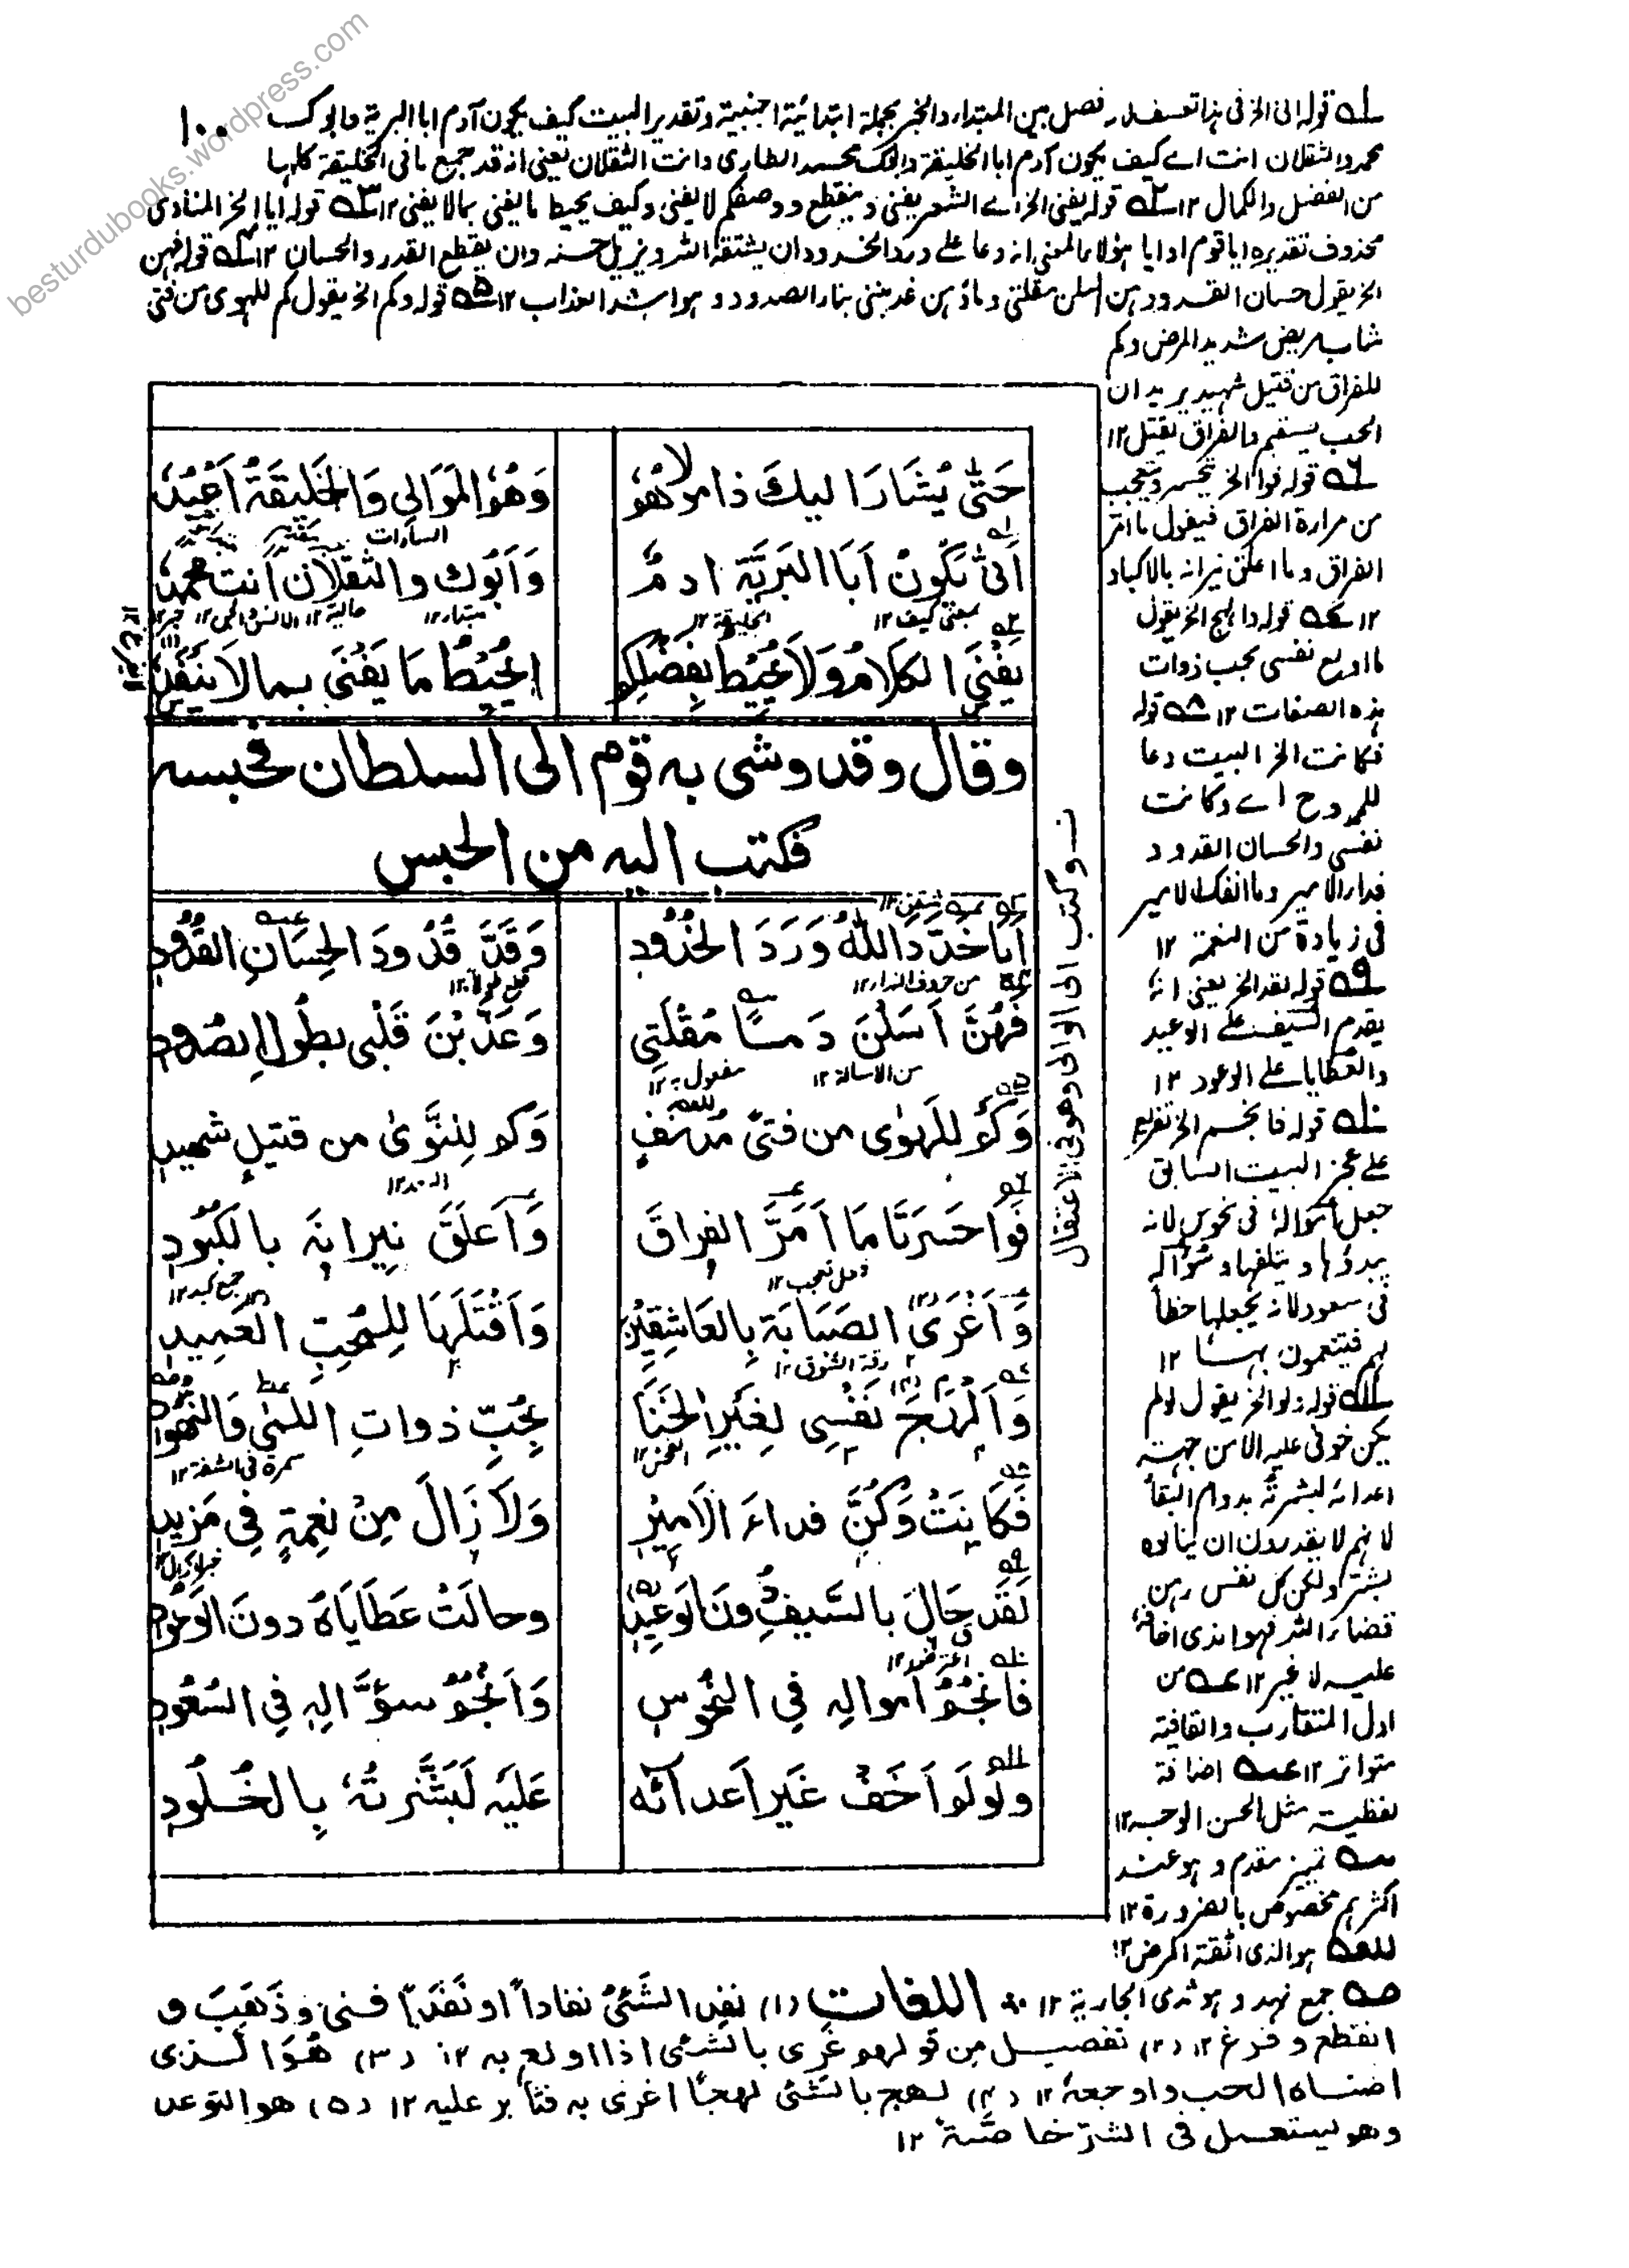 besturdubooks.wordpress.com
١٠٠
١ه قوله انى الخ فى هذا تعسف لانه فصل بين المبتدا والخبر بجملة ابتدائية اجنبية وتقدير البيت كيف يكون آدم ابا البرية وابوك
محمد والثقلان انت اے كيف يكون آدم ابا الخليقة وابوك محمد الطارى وانت الثقلان يعنى انه قد جمع ما فى الخليقة كلها
من الفضل والكمال ١٢ ٢ه قوله يفنى الخ اے الشعر يفنى وينقطع ووصفكم لا يفنى وكيف يحيط ما يفنى بما لا يفنى ١٢ ٣ه قوله ايا الخ المنادى
محذوف تقديره ايا قوم او ايا هؤلاء المعنى انه دعا على ورد الخدود ان يشققه الله ويزيل حسنه وان يقطع القدود الحسان ١٢ ٤ه قوله فهن
الخ يقول حسان القدود هن اسلن مقلتى دما وهن عذبننى بنار الصدود وهو اشد العذاب ١٢ ٥ه قوله وكم الخ يقول كم للهوى من فتى
شاب مريض شديد المرض وكم
للفراق من قتيل شهيد يريد ان
الحب يسقم والفراق يقتل ١٢
٦ه قوله فوا الخ يتحسر ويتعجب
من مرارة الفراق فيقول ما امر
الفراق وما اعلق نيرانه بالاكباد
١٢ ٧ه قوله والهج الخ يقول
ما اولع نفسى بحب ذوات
هذه الصفات ١٢ ٨ه قوله
فكانت الخ البيت دعا
للممدوح اے وكانت
نفسى والحسان القدود
فداء الامير وما انفك الامير
فى زيادة من النعمة ١٢
٩ه قوله لقد الخ يعنى انه
يقدم السيف على الوعيد
والعطايا على الوعود ١٢
١٠ه قوله فانجم الخ تفريع
على عجز البيت السابق
جعل امواله فى نحوس لانه
يبددها ويتلفها وسؤاله
فى سعود لانه يجعلها حظا
لهم فيتنعمون بها ١٢
١١ه قوله ولو الخ يقول لو لم
يكن خوفى عليه الا من جهته
اعدائه لبشرته بدوام البقاء
لانهم لا يقدرون ان ينالوه
بشر ولكن كل نفس رهن
قضاء الله فهو الذى اخافه
عليه لا غير ١٢ عه من
اول المتقارب والقافية
متواتر ١٢ عه اضافة
لفظية مثل الحسن الوجه ١٢
سه تمييز مقدم وهو عند
اكثرهم مخصوص بالضرورة ١٢
للعه هو الذى اثقله المرض ١٢
حَتّٰى يُشَارَ اليكَ ذا مولاهُمُ وَهُمُ المَوَالِى وَالخَلِيقَةُ اَعْبُدُ
السادات
اَنّٰى يَكُونُ اَبَا البَرِيَّةِ ادمُ وَاَبُوكَ والثقلانِ اَنتَ محمدُ
بمعنى كيف ١٢ الخليقة ١٢ مبتدا ١٢ حالية ١٢ الانس والجن ١٢ خبر ١٢
يَفْنَى الكلامُ وَلَا يُحِيطُ بِفَضْلِكُمْ ايُحِيطُ مَا يَفْنَى بما لَا يَنْفَدُ
وقال وقد وشى به قوم الى السلطان فحبسه
فكتب اليه من الحبس
نـ وكتب الى الوالى وهو فى الاعتقال
اَيَا خَدَّدَ اللّٰهُ وَرْدَ الخُدُودِ وَقَدَّ قُدُودَ الحِسَانِ القُدُودِ
من حروف النداء ١٢ قطع طولا ١٢
فَهُنَّ اَسَلْنَ دَمًا مُقْلَتِى وَعَذَّبْنَ قَلْبِى بِطُولِ الصُدُودِ
من الاسالة ١٢ مفعول به ١٢
وَكَمْ لِلْهَوٰى من فَتىً مُدْنَفٍ وَكم لِلنَّوٰى من قتيلٍ شهيدِ
البعد ١٢
فَوَا حَسرَتَا مَا اَمَرَّ الفِراقَ وَاَعلَقَ نِيرانَهُ بالكُبُودِ
فعل تعجب ١٢ جمع كبد ١٢
وَاَغْرَى الصَبَابَةَ بِالعَاشِقِيْنَ وَاَقْتَلَهَا لِلمُحِبِّ العَمِيدِ
رقة الشوق ١٢
وَاَلْهَجَ نَفْسِى لِغَيْرِ الخَنَا بِحُبِّ ذَواتِ اللمٰى وَالنهُودِ
الفحش ١٢ سمرة فى الشفة ١٢
فَكَانَتْ وَكُنَّ فداءَ الاَمِيْرِ وَلَا زَالَ مِنْ نِعمةٍ فى مَزِيدِ
خبر لازال
لَقَد حَالَ بالسَيفِ دُونَ الوَعِيدِ وحالَتْ عَطَايَاهُ دونَ الوُعُودِ
فانجُمُ اموالِهِ فِى النُحُوسِ وَاَنجُمُ سؤَّالِهِ فى السُعُودِ
ولو لَم اَخَفْ غَيرَ اَعدائه عَلَيْهِ لَبَشَّرتُهُ بِالخُلُودِ
صه جمع نهد وهو ثدى الجارية ١٢ اللغات (١) نفد الشَئُ نفاداً او نَفَداً فنى وذَهَبَ و
انقطع وفرغ ١٢ (٢) تفصيل من قولهم غَرِى بالشئ اذا اولع به ١٢ (٣) هُوَ الَّذى
اضناه الحب واوجعهٗ ١٢ (٤) لهج بالشئ لهجاً اغرى به فثابر عليه ١٢ (٥) هو التوعد
وهو يستعمل فى الشرّ خاصّةً ١٢